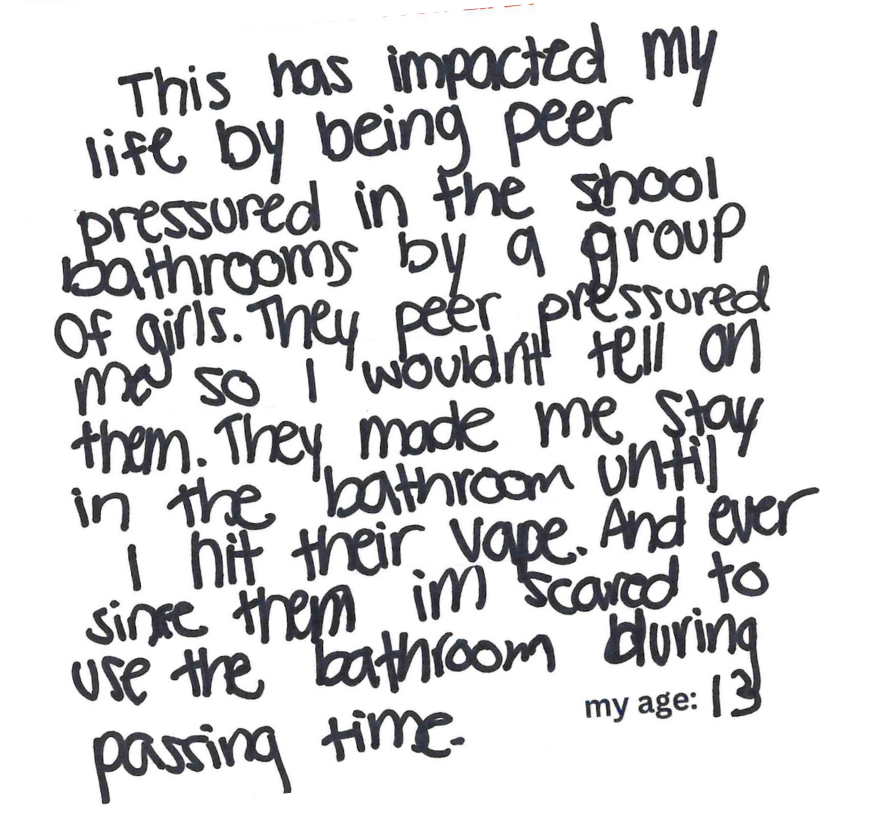 This has impacted my
life by being peer
pressured in the school
bathrooms by a group
of girls. They peer pressured
me so I wouldn't tell on
them. They made me stay
in the bathroom until
I hit their vape. And ever
since them im scared to
use the bathroom during
passing time.
my age: 13